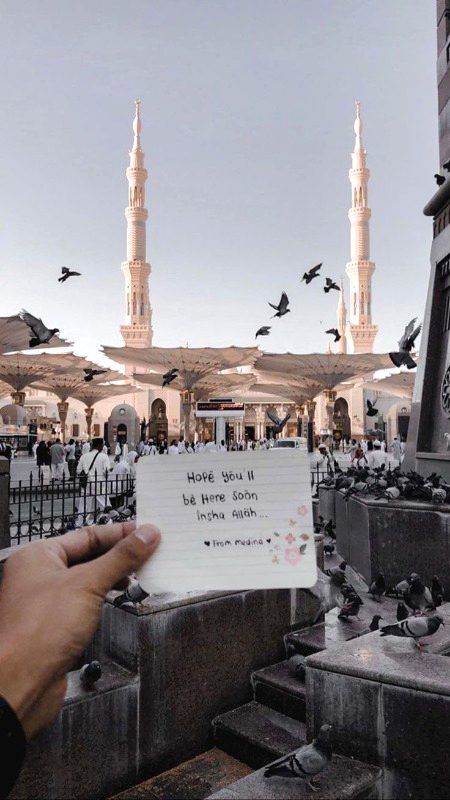 Hope You'll
be Here Soon
Insha Allah...
♥ From medina ♥